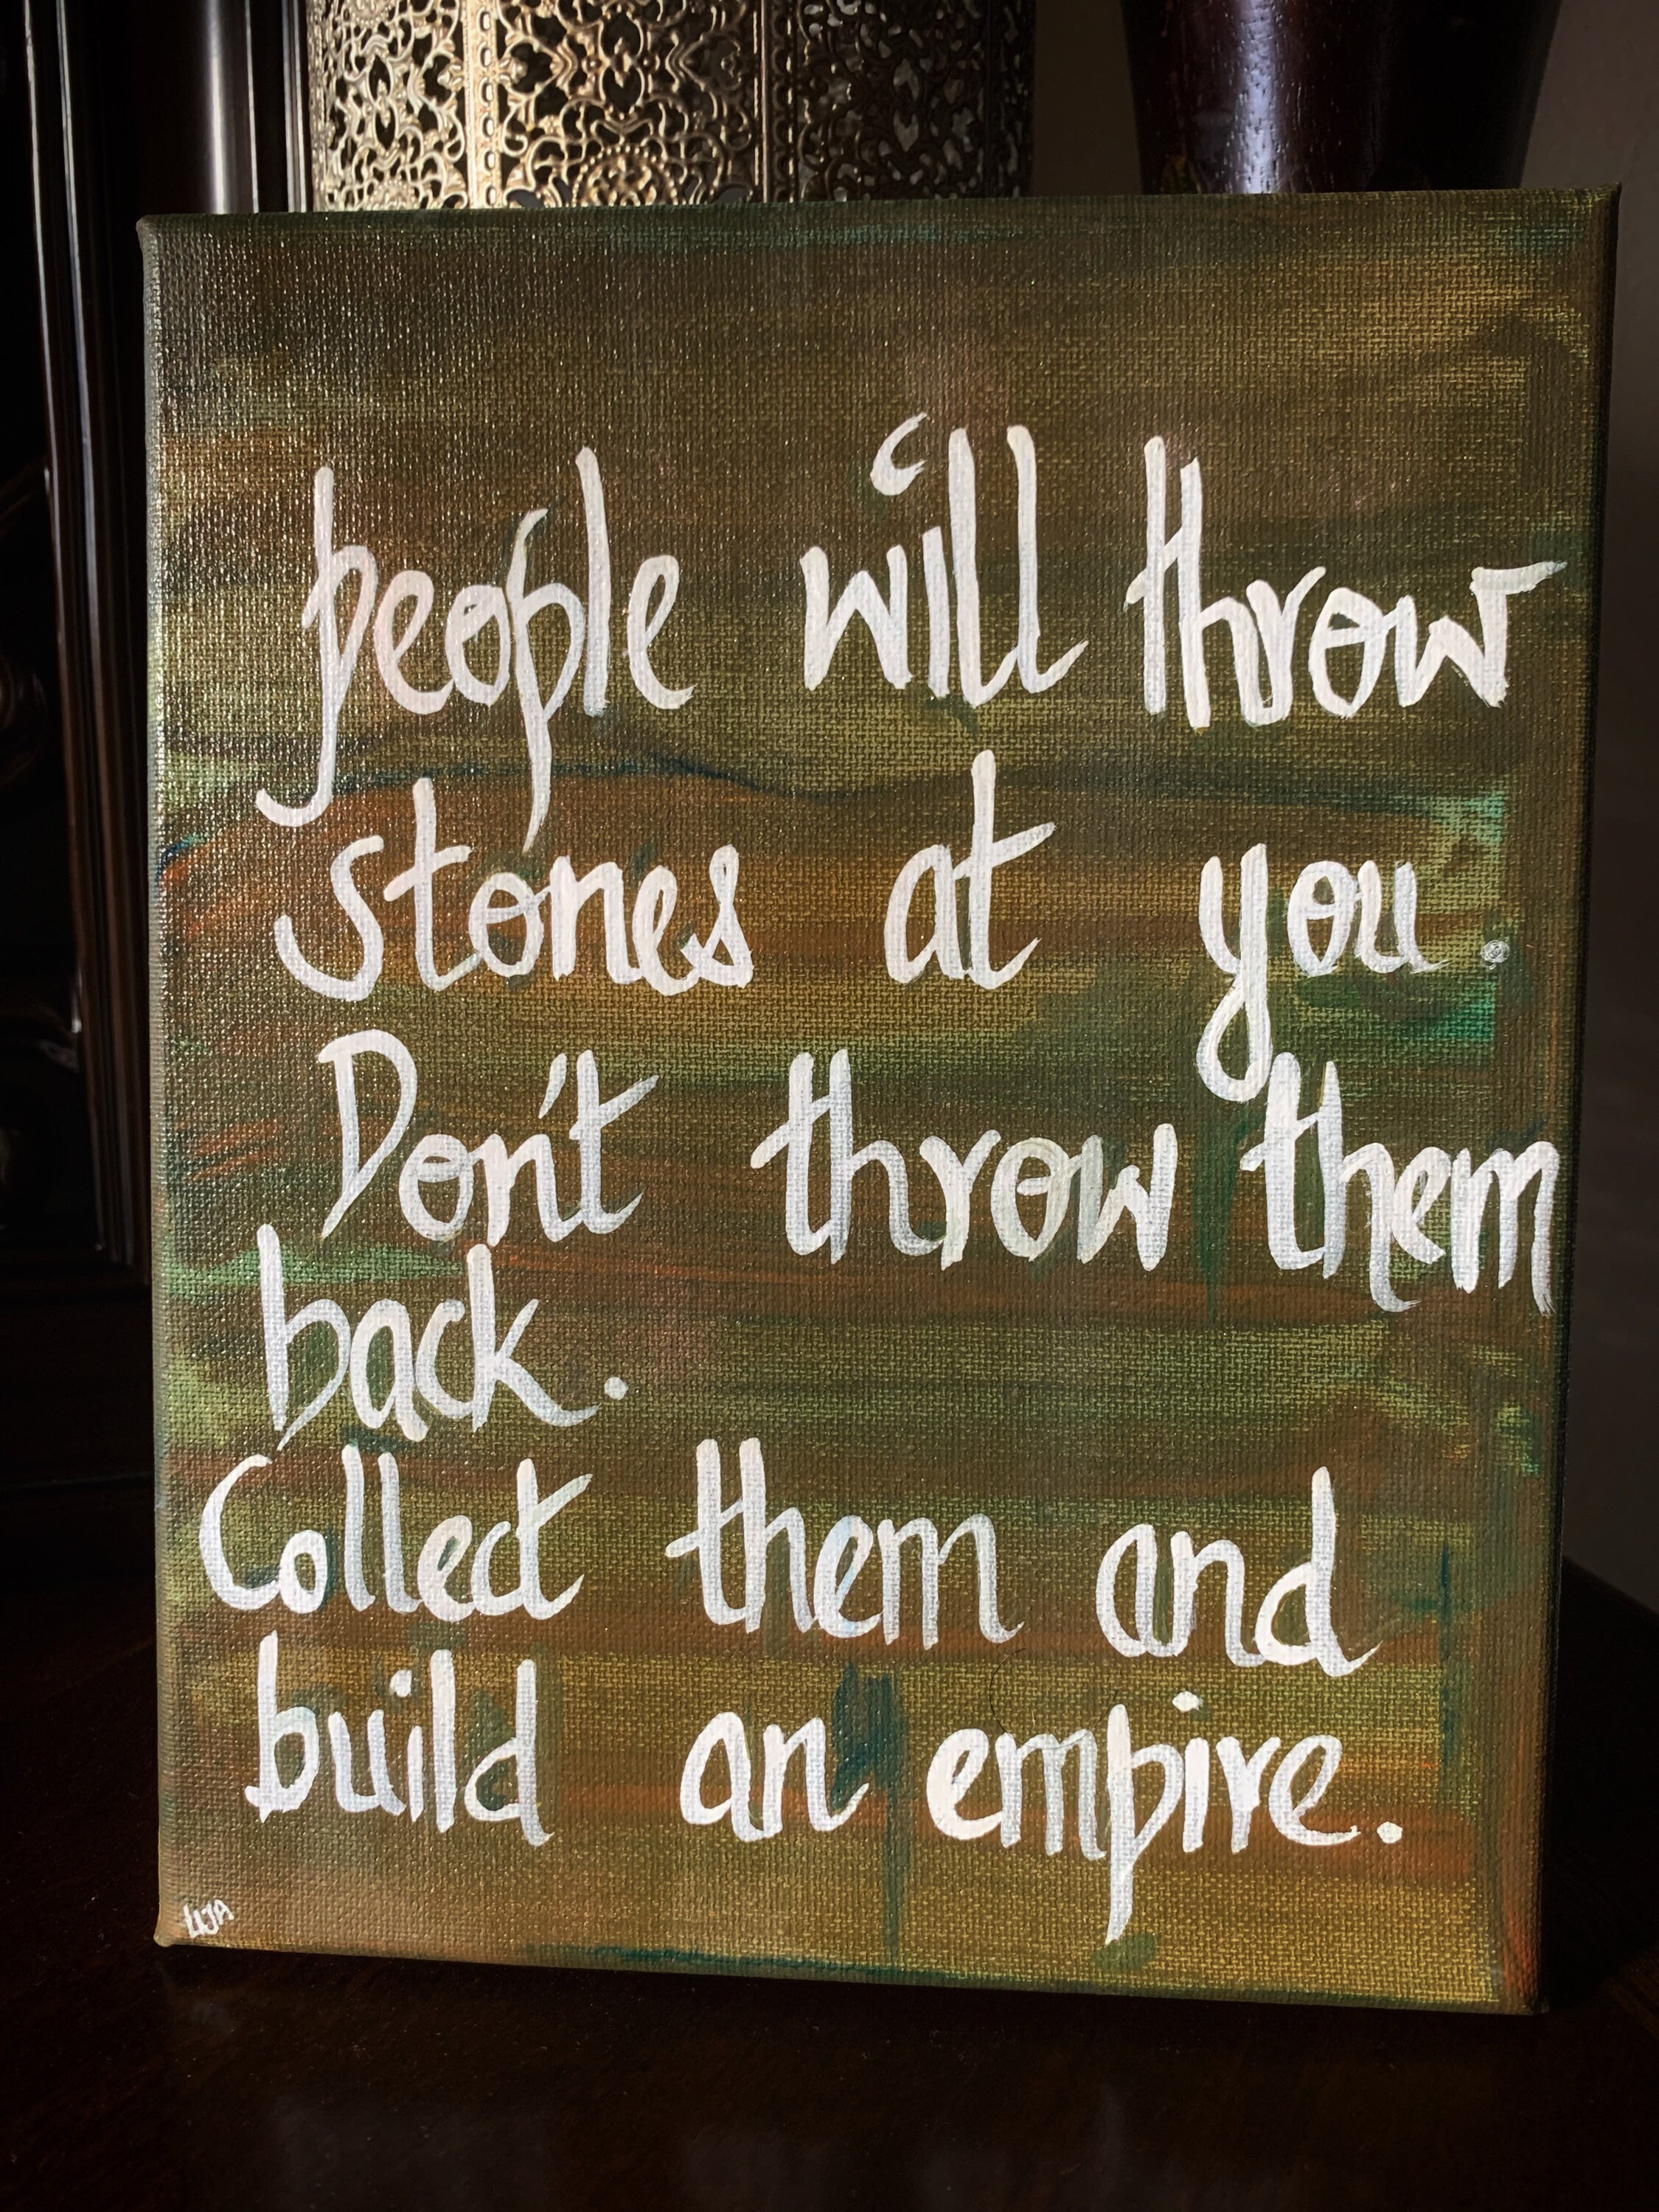 people will throw
stones at you.
Don't throw them
back.
Collect them and
build an empire.
LIJA